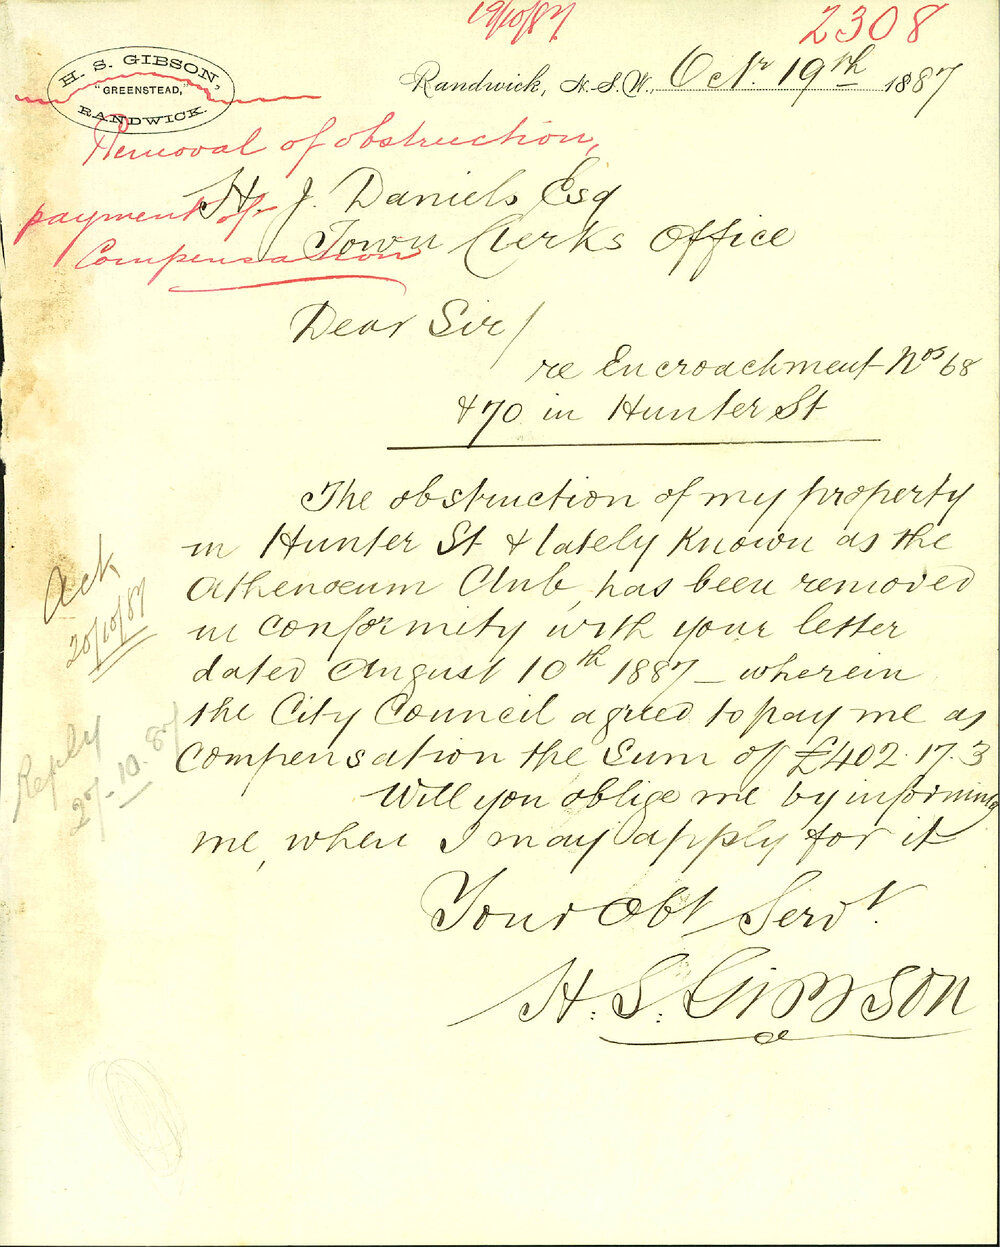 19/10/87
2308
H. S. GIBSON,
"GREENSTEAD,"
RANDWICK.
Randwick, N.S.W., Octr. 19th 1887
Removal of obstruction,
payment of
Compensation
H J. Daniels Esq
Town Clerks Office
Dear Sir/
re Encroachment Nos 68
& 70 in Hunter St
The obstruction of my property
in Hunter St & lately known as the
Athenœum Club, has been removed
in conformity with your letter
dated August 10th 1887 - wherein
the City Council agreed to pay me as
compensation the sum of £402.17.3
Will you oblige me by informing
me, when I may apply for it
Your Obt Servt.
H. S. Gibson
Ack
20/10/87
Reply
27-10.87